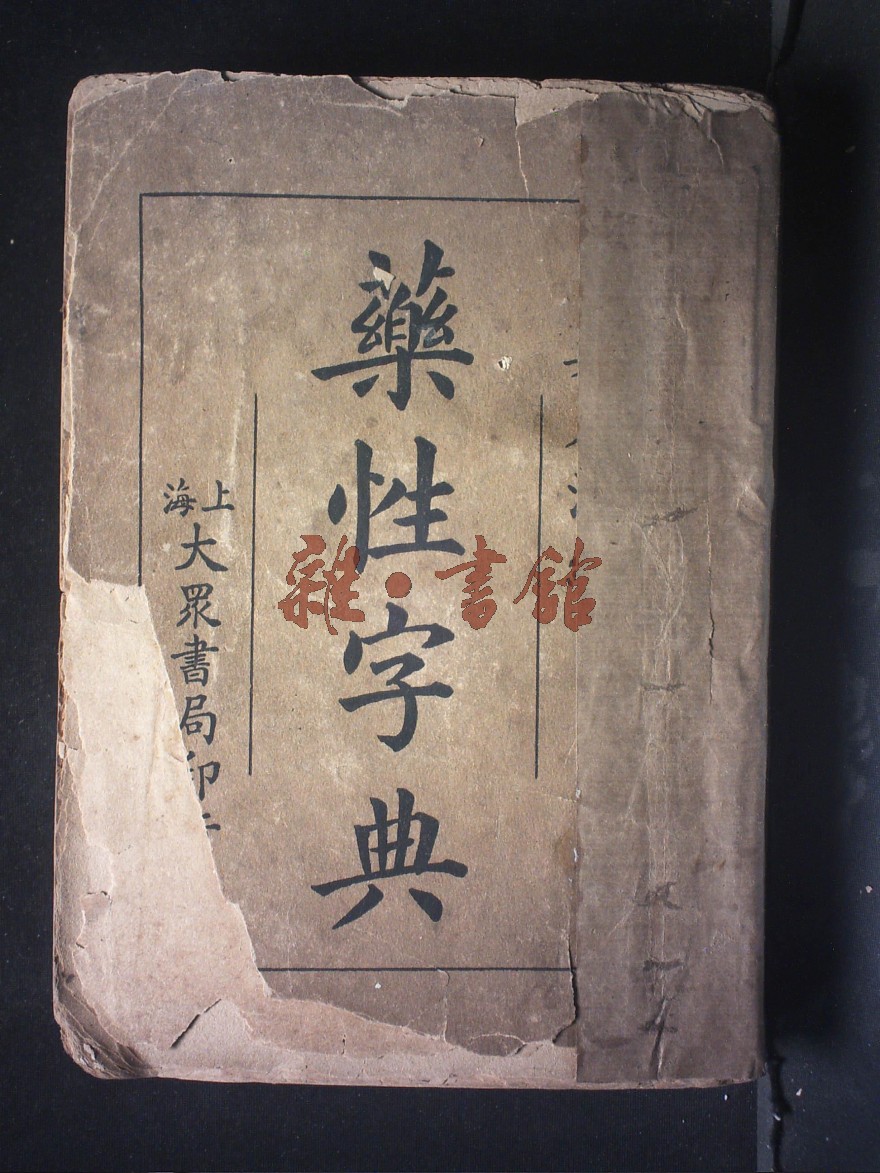 藥性字典
上海
大眾書局印
雜·書館